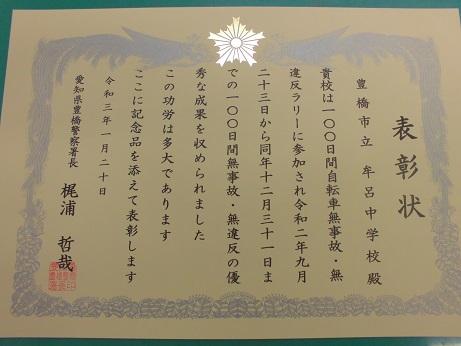 表彰状
豊橋市立 牟呂中学校殿
貴校は一〇〇日間自転車無事故・無
違反ラリーに参加され令和二年九月
二十三日から同年十二月三十一日ま
での一〇〇日間無事故・無違反の優
秀な成果を収められました
この功労は多大であります
ここに記念品を添えて表彰します
令和三年一月二十日
愛知県豊橋警察署長 梶浦 哲哉